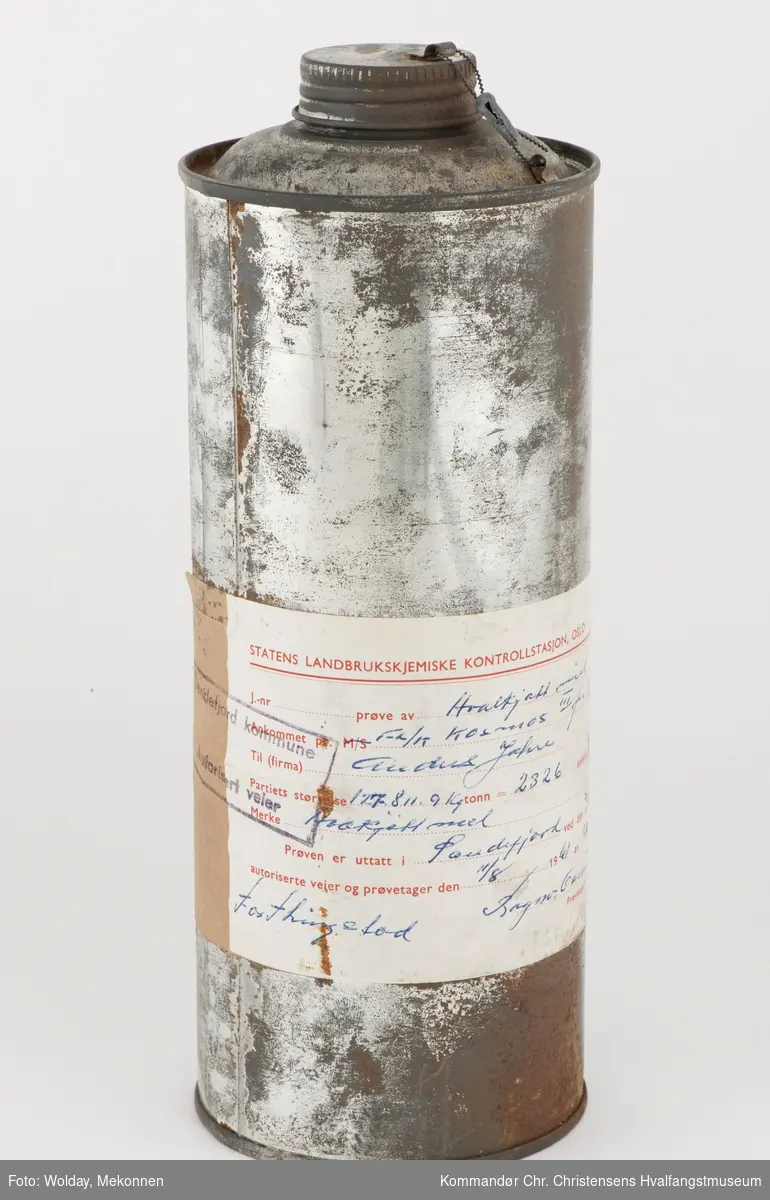 STATENS LANDBRUKSKJEMISKE KONTROLLSTASJON, OSLO
J.-nr prøve av Hvalkjøtt mel
Ankommet pr. M/S Fl/K Kosmos III
Til (firma) Anders Jahre
Partiets størrelse 117.811.9 Kg tonn = 2326
Merke Hvalkjøtt mel
Prøven er uttatt i Sandefjord ved den
autoriserte veier og prøvetager den 11/8 1961 av
For Thingstad Ragnv.
Sandefjord kommune
Autorisert veier
Foto: Wolday, Mekonnen
Kommandør Chr. Christensens Hvalfangstmuseum